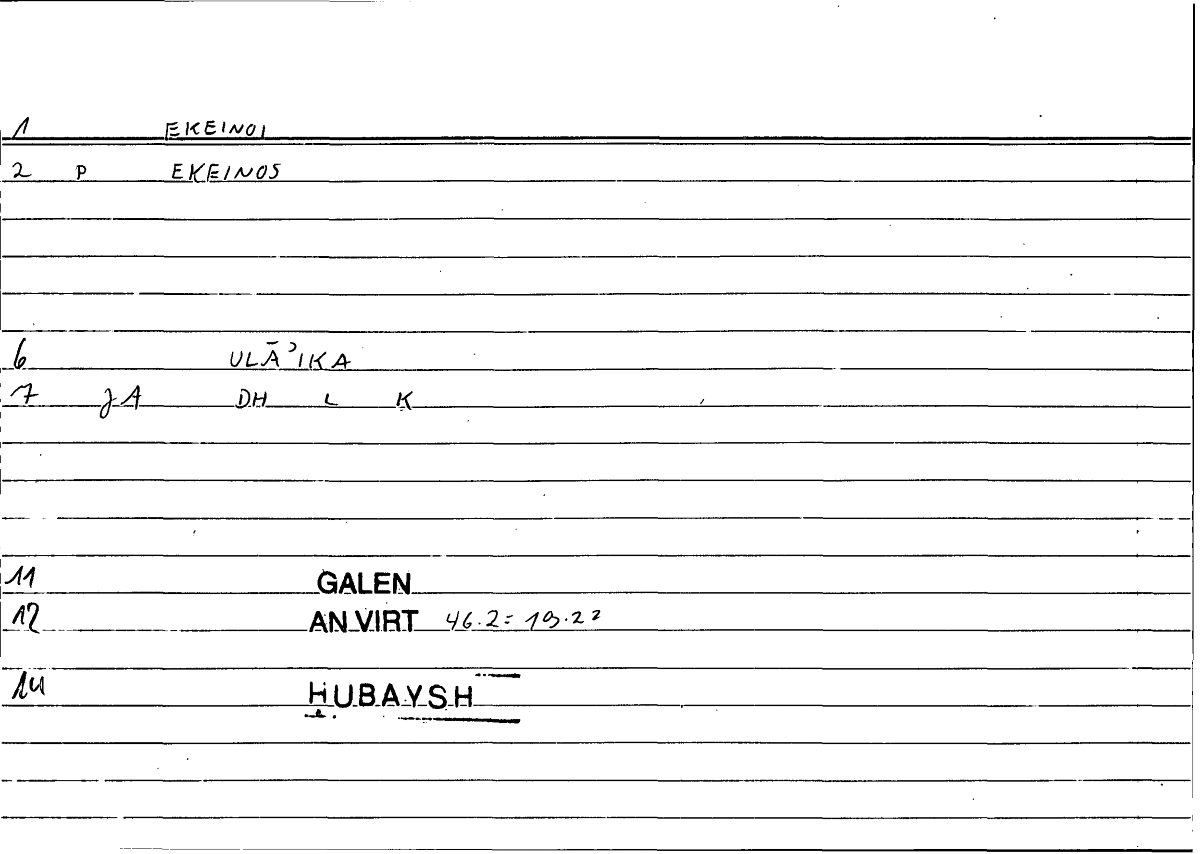 1 EKEINOI
2 P EKEINOS
6 ULĀʾIKA
7 JA DH L K
11 GALEN
12 AN VIRT 46.2 = 19.22
14 ḤUBAYSH